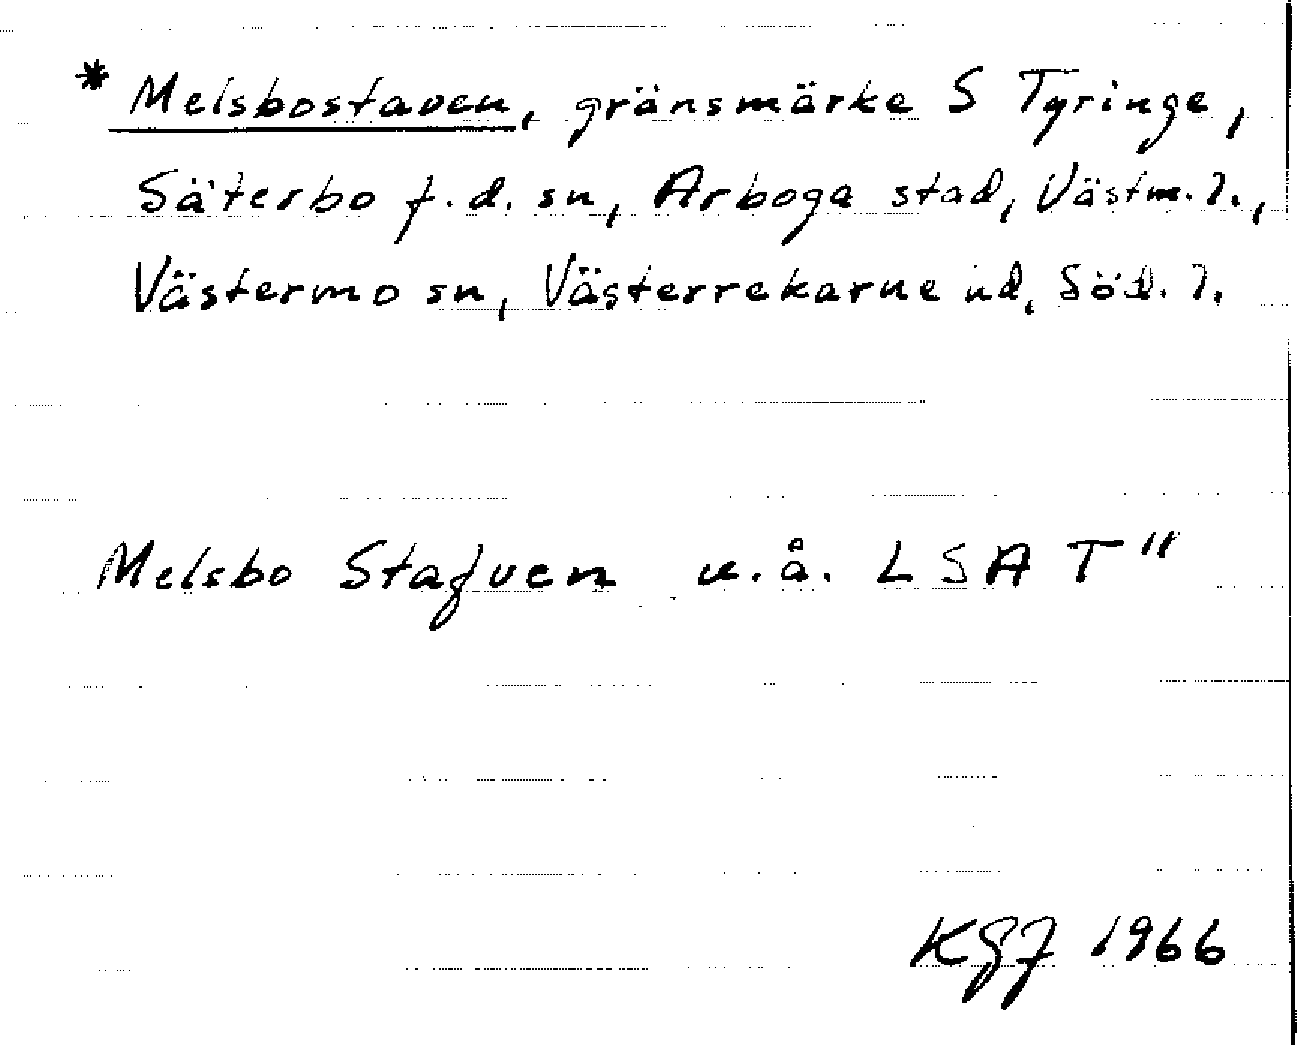 * Melsbostaven, gränsmärke S Tyringe,
Säterbo f.d. sn, Arboga stad, Västm. l.,
Västermo sn, Västerrekarne hd, Söd. l.
Melsbo Stafven u.å. LSA T"
KGJ 1966